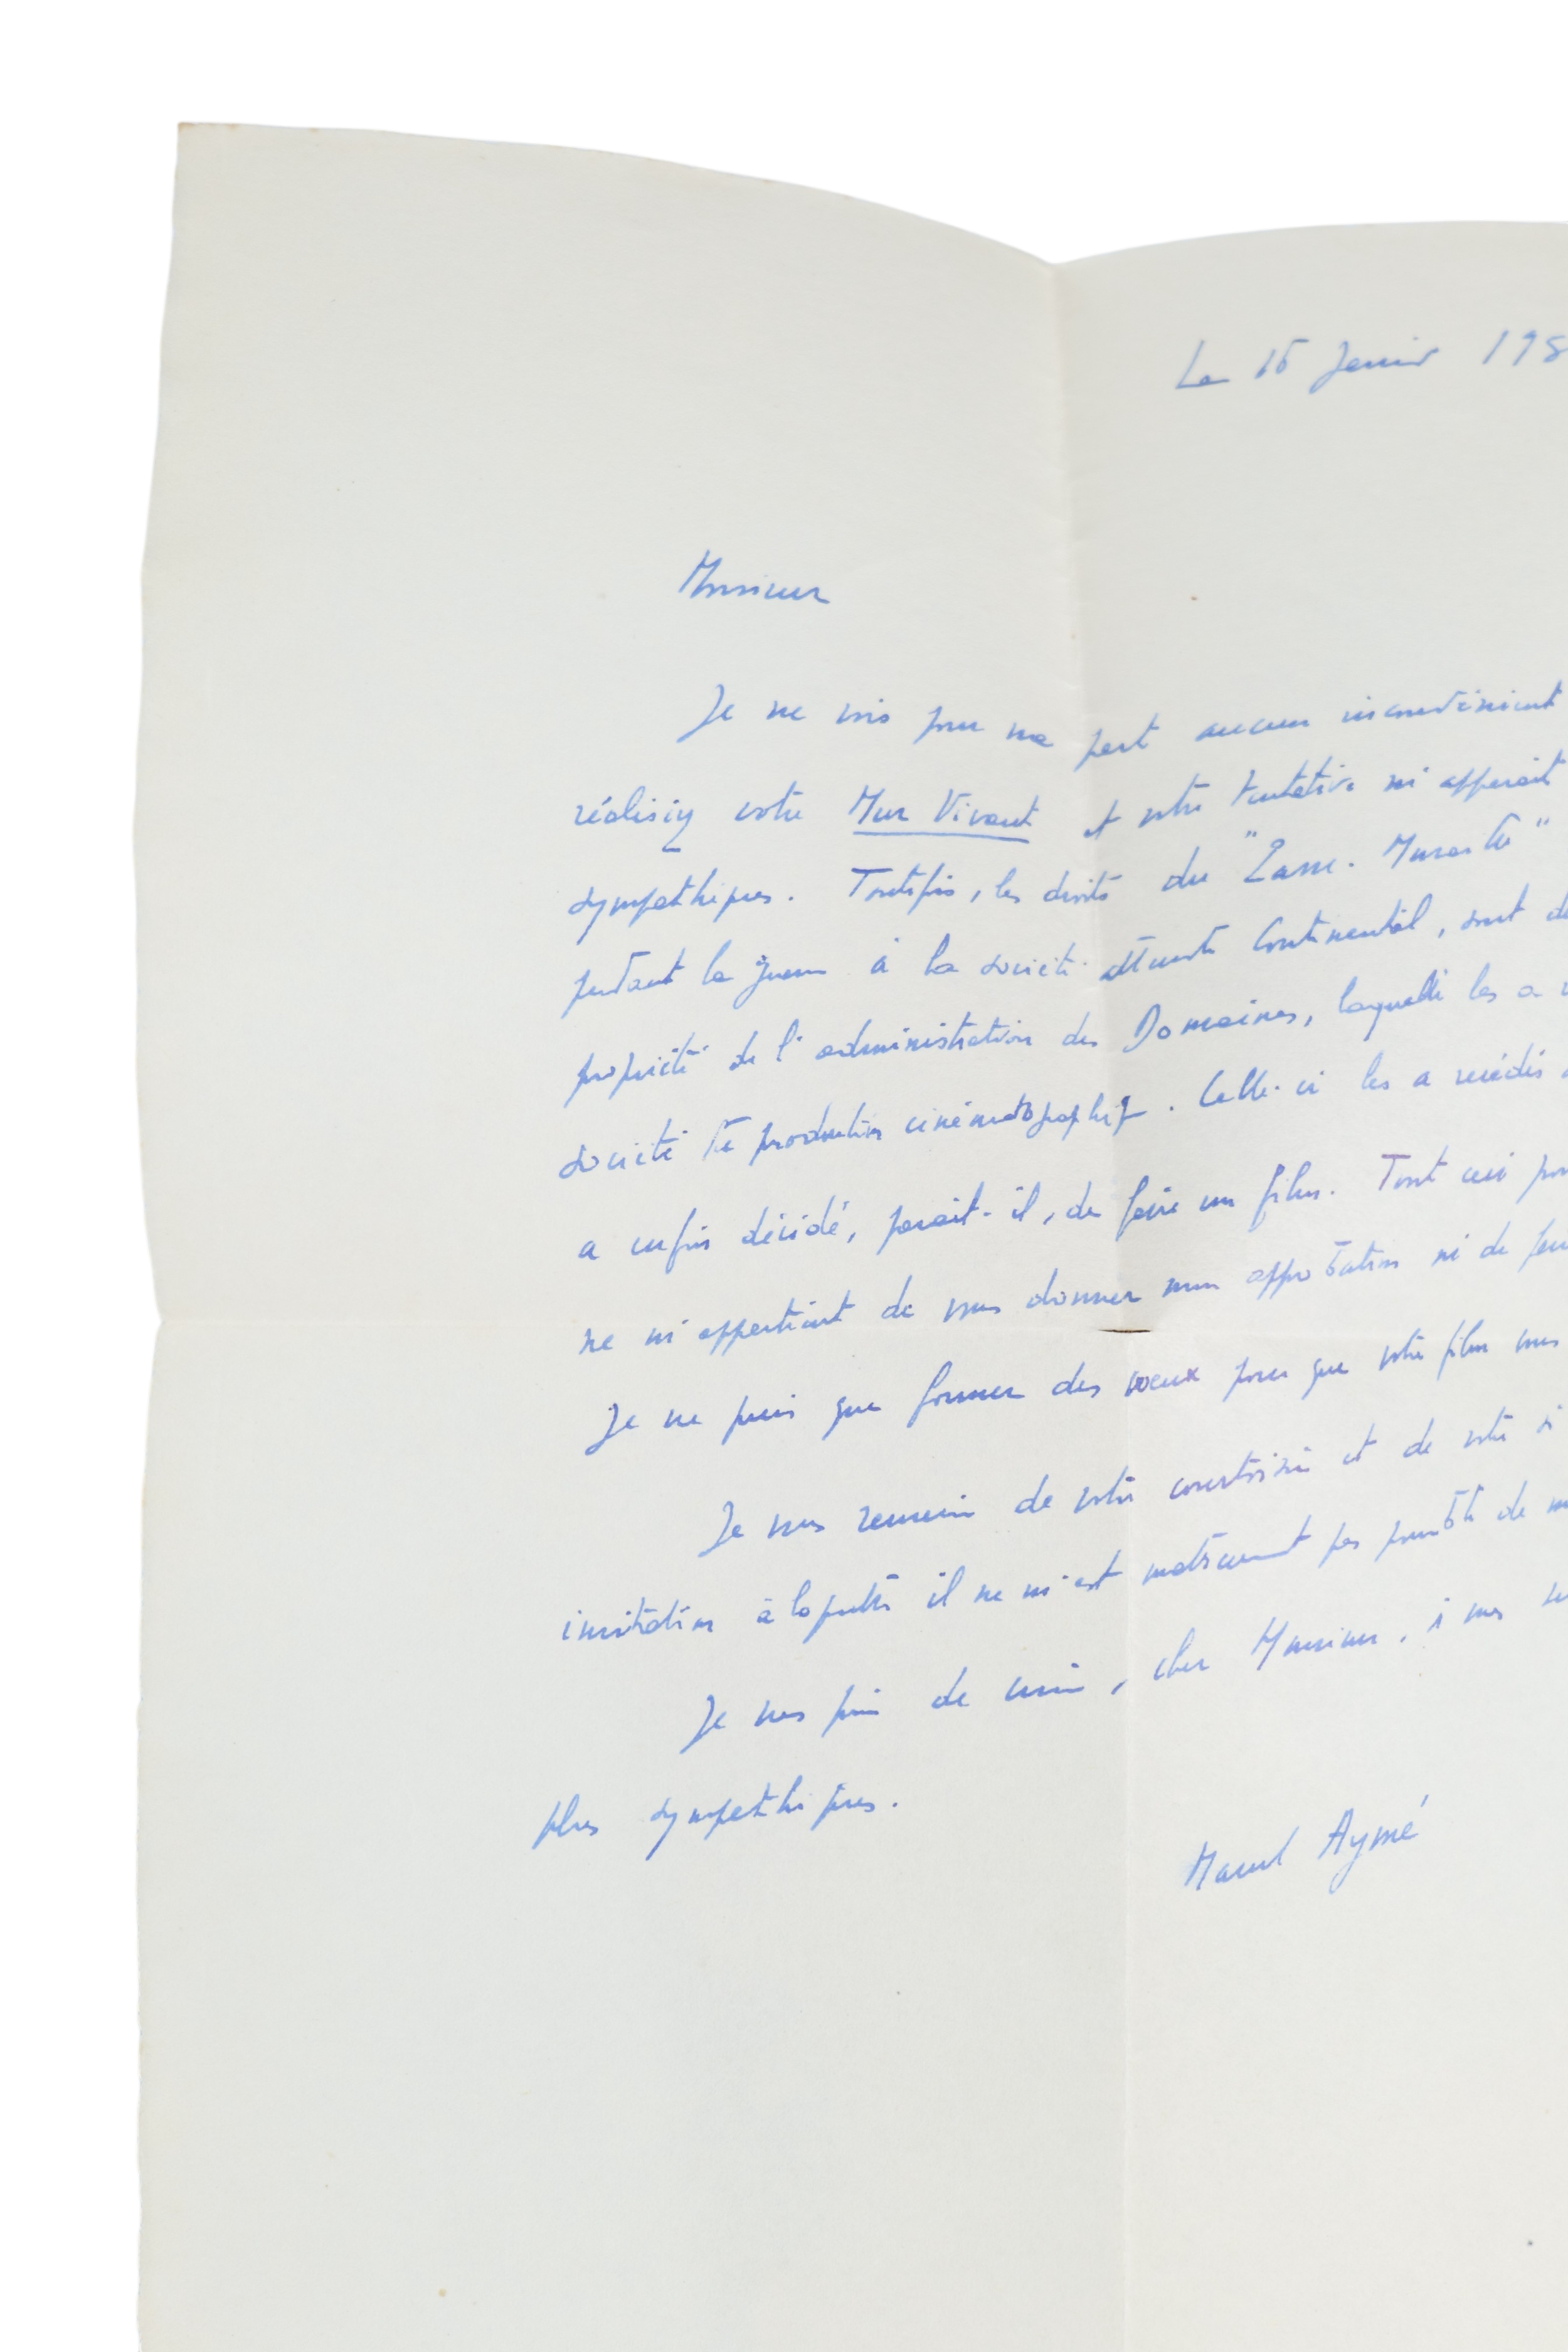 Le 15 Janvier 195
Monsieur
Je ne vois pour ma part aucun inconvénient
réalisiez votre Mur Vivant et votre tentative m'apparait
sympathique. Toutefois, les droits du "Passe-Muraille"
pendant la guerre à la société allemande Continental, sont de
propriété de l'administration des Domaines, laquelle les a
société de production cinématographique. Celle-ci les a recédés
a enfin décidé, parait-il, de faire un film. Tout ceci pour
ne m'appartient de vous donner mon approbation ni de
Je ne puis que former des voeux pour que votre film
Je vous remercie de votre courtoisie et de votre
invitation à laquelle il ne m'est matériellement pas possible de
Je vous prie de croire, cher Monsieur, à mes
plus sympathiques.
Marcel Aymé